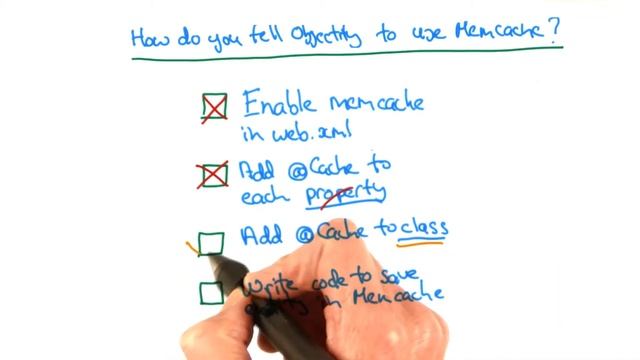 How do you tell Objectify to use Memcache?
Enable memcache
in web.xml
Add @Cache to
each property
Add @Cache to class
Write code to save
in Memcache